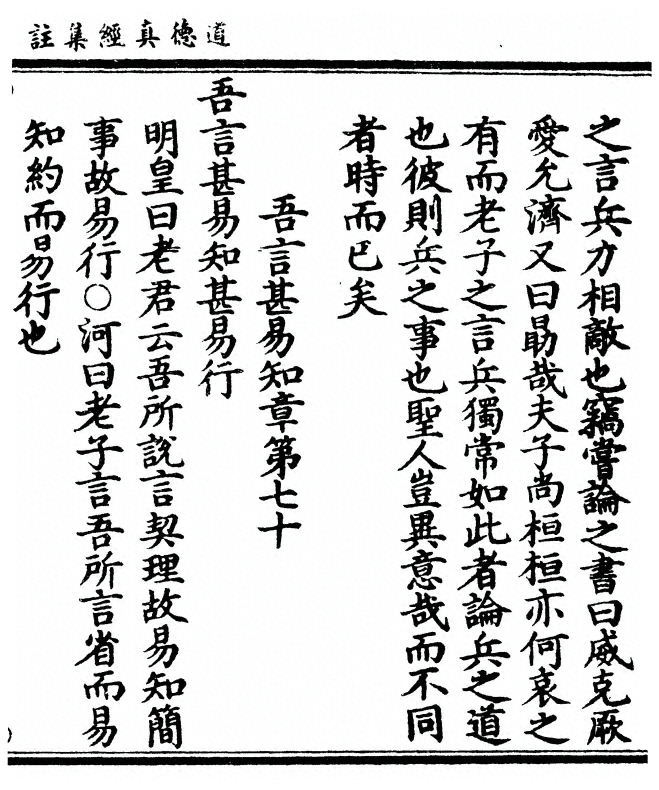 道德真經集註
之言兵力相敵也竊嘗論之書曰威克厥
愛允濟又曰勗哉夫子尚桓桓亦何哀之
有而老子之言兵獨常如此者論兵之道
也彼則兵之事也聖人豈異意哉而不同
者時而巳矣
吾言甚易知章第七十
吾言甚易知甚易行
明皇曰老君云吾所說言契理故易知簡
事故易行○河曰老子言吾所言省而易
知約而易行也